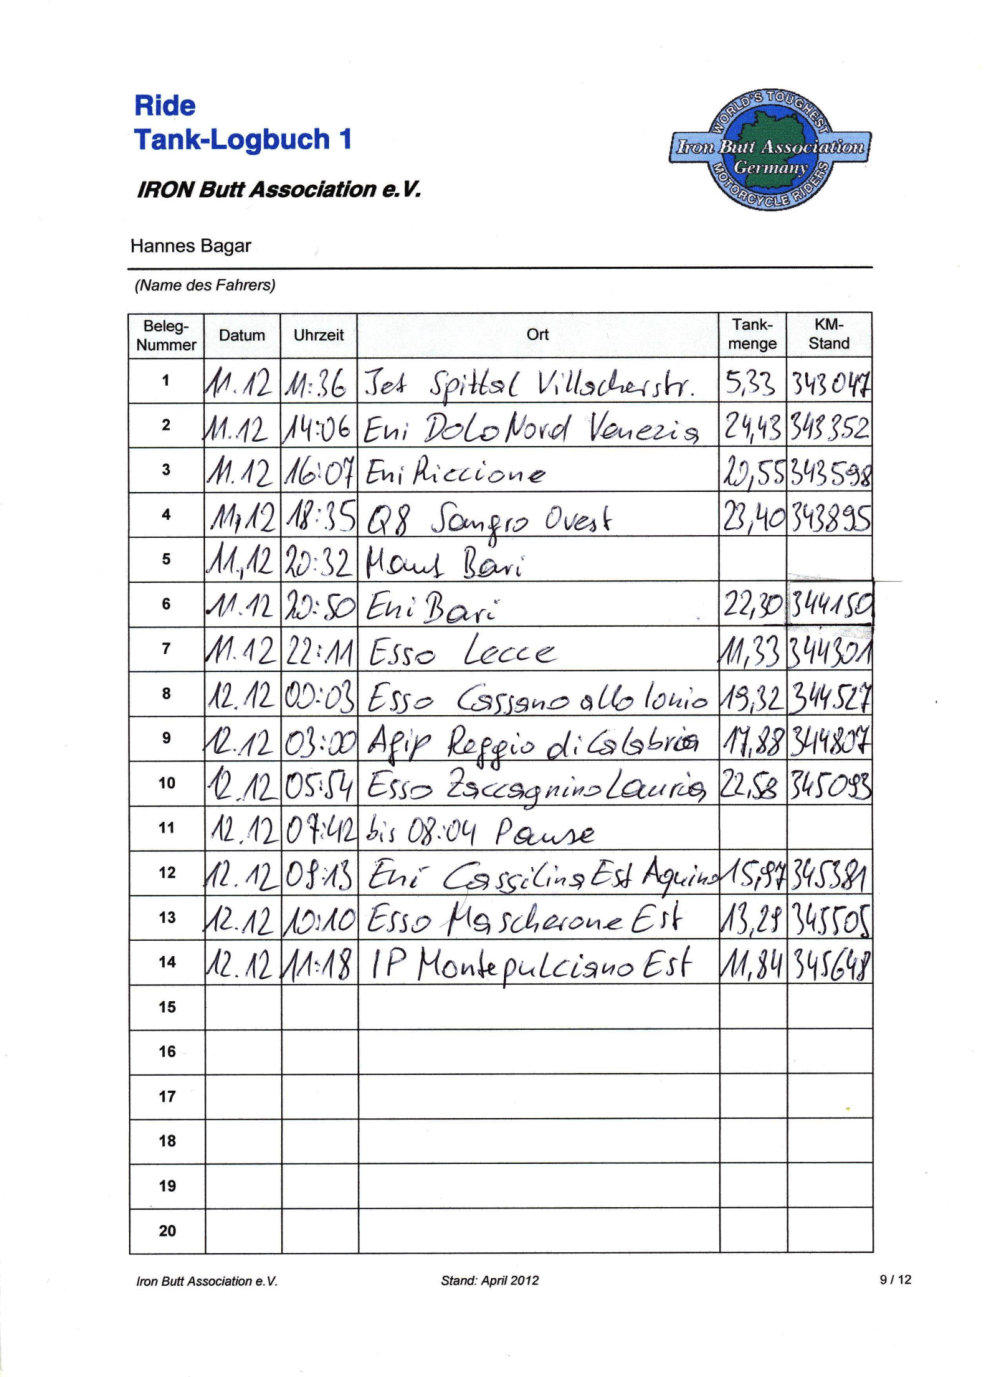 Ride
Tank-Logbuch 1
IRON Butt Association e.V.
WORLD'S TOUGHEST
Iron Butt Association
Germany
MOTORCYCLE RIDERS
Hannes Bagar
(Name des Fahrers)
Beleg-Nummer Datum Uhrzeit Ort Tank-menge KM-Stand
1 11.12 11:36 Jet Spittal Villacherstr. 5,33 343047
2 11.12 14:06 Eni DoLo Nord Venezia 24,43 343352
3 11.12 16:07 Eni Riccione 20,55 343598
4 11,12 18:35 Q8 Sangro Ovest 23,40 343895
5 11,12 20:32 Maut Bari
6 11.12 20:50 Eni Bari 22,30 344150
7 11.12 22:11 Esso Lecce 11,33 344301
8 12.12 00:03 Esso Cassano allo Ionio 19,32 344527
9 12.12 03:00 Agip Reggio di Calabria 17,88 344807
10 12.12 05:54 Esso Zaccagnino Lauria 22,58 345093
11 12.12 07:42 bis 08:04 Pause
12 12.12 09:13 Eni Cassilina Est Aquino 15,97 345381
13 12.12 10:10 Esso Mascherone Est 13,29 345505
14 12.12 11:18 IP Montepulciano Est 11,84 345648
15
16
17
18
19
20
Iron Butt Association e.V. Stand: April 2012 9 / 12